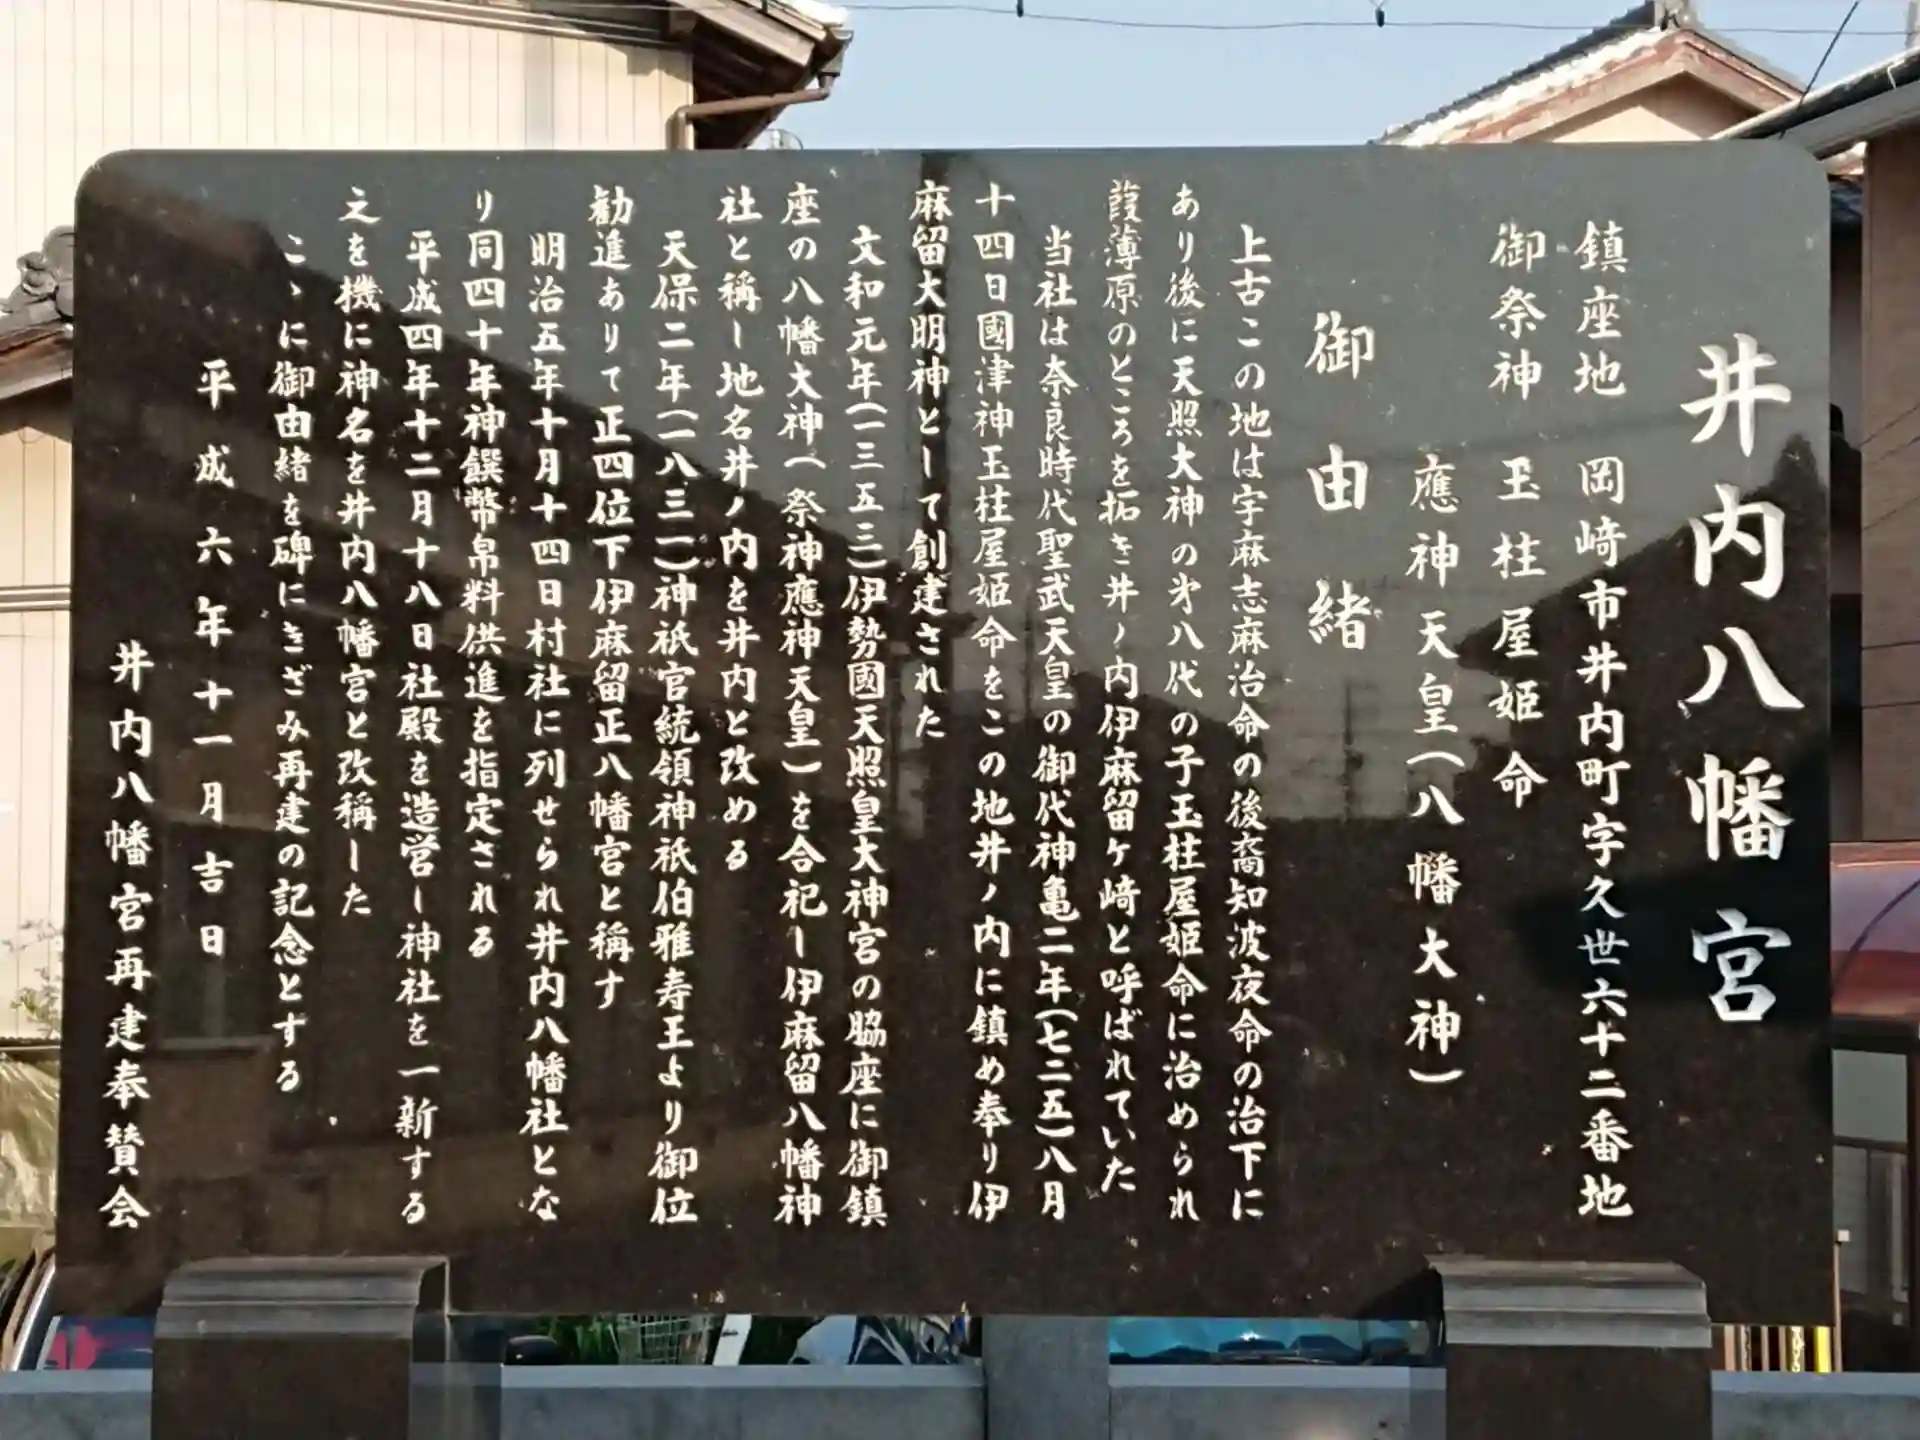 井内八幡宮
鎮座地 岡﨑市井内町字久世六十二番地
御祭神 玉柱屋姫命
應神天皇(八幡大神)
御由緒
上古この地は宇麻志麻治命の後裔知波夜命の治下に
あり後に天照大神の㐧八代の子玉柱屋姫命に治められ
葭薄原のところを拓き井ノ内伊麻留ケ﨑と呼ばれていた
当社は奈良時代聖武天皇の御代神亀二年(七二五)八月
十四日國津神玉柱屋姫命をこの地井ノ内に鎮め奉り伊
麻留大明神として創建された
文和元年(一三五三)伊勢國天照皇大神宮の脇座に御鎮
座の八幡大神(祭神應神天皇)を合祀し伊麻留八幡神
社と稱し地名井ノ内を井内と改める
天保二年(一八三一)神祇官統領神祇伯雅寿王より御位
勧進ありて正四位下伊麻留正八幡宮と稱す
明治五年十月十四日村社に列せられ井内八幡社とな
り同四十年神饌幣帛料供進を指定される
平成四年十二月十八日社殿を造営し神社を一新する
之を機に神名を井内八幡宮と改稱した
こゝに御由緒を碑にきざみ再建の記念とする
平成六年十一月吉日
井内八幡宮再建奉賛会